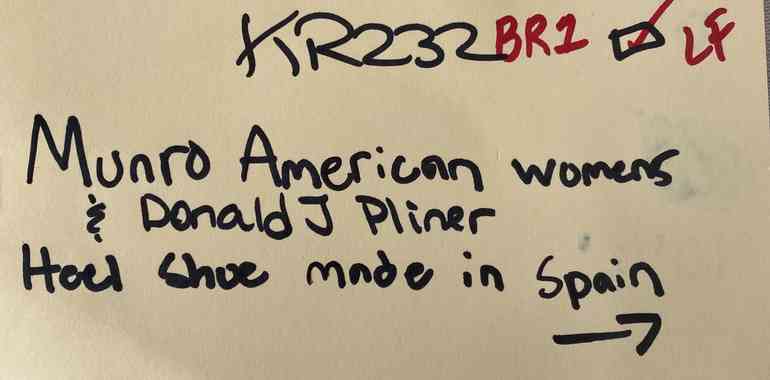 KR232BR1 ☑ LF
Munro American womens
& Donald J Pliner
Heel Shoe made in Spain
→